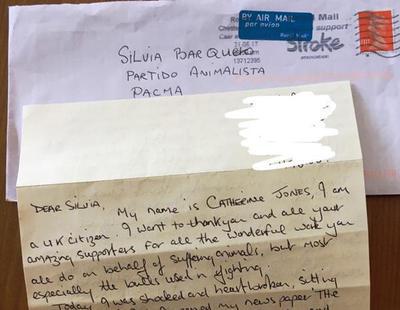 BY AIR MAIL
par avion
Royal Mail
Mail
support
Stroke
ASSOCIATION
21.06.17
13712395
SILVIA BARQUERO
PARTIDO ANIMALISTA
PACMA
DEAR SILVIA, My name is CATHERINE JONES, I am
a UK citizen. I want to thank you and all your
amazing supporters for all the wonderful work you
all do on behalf of suffering animals, but most
especially the bulls used in fighting.
Today I was shocked and heartbroken, sitting
my newspaper THE